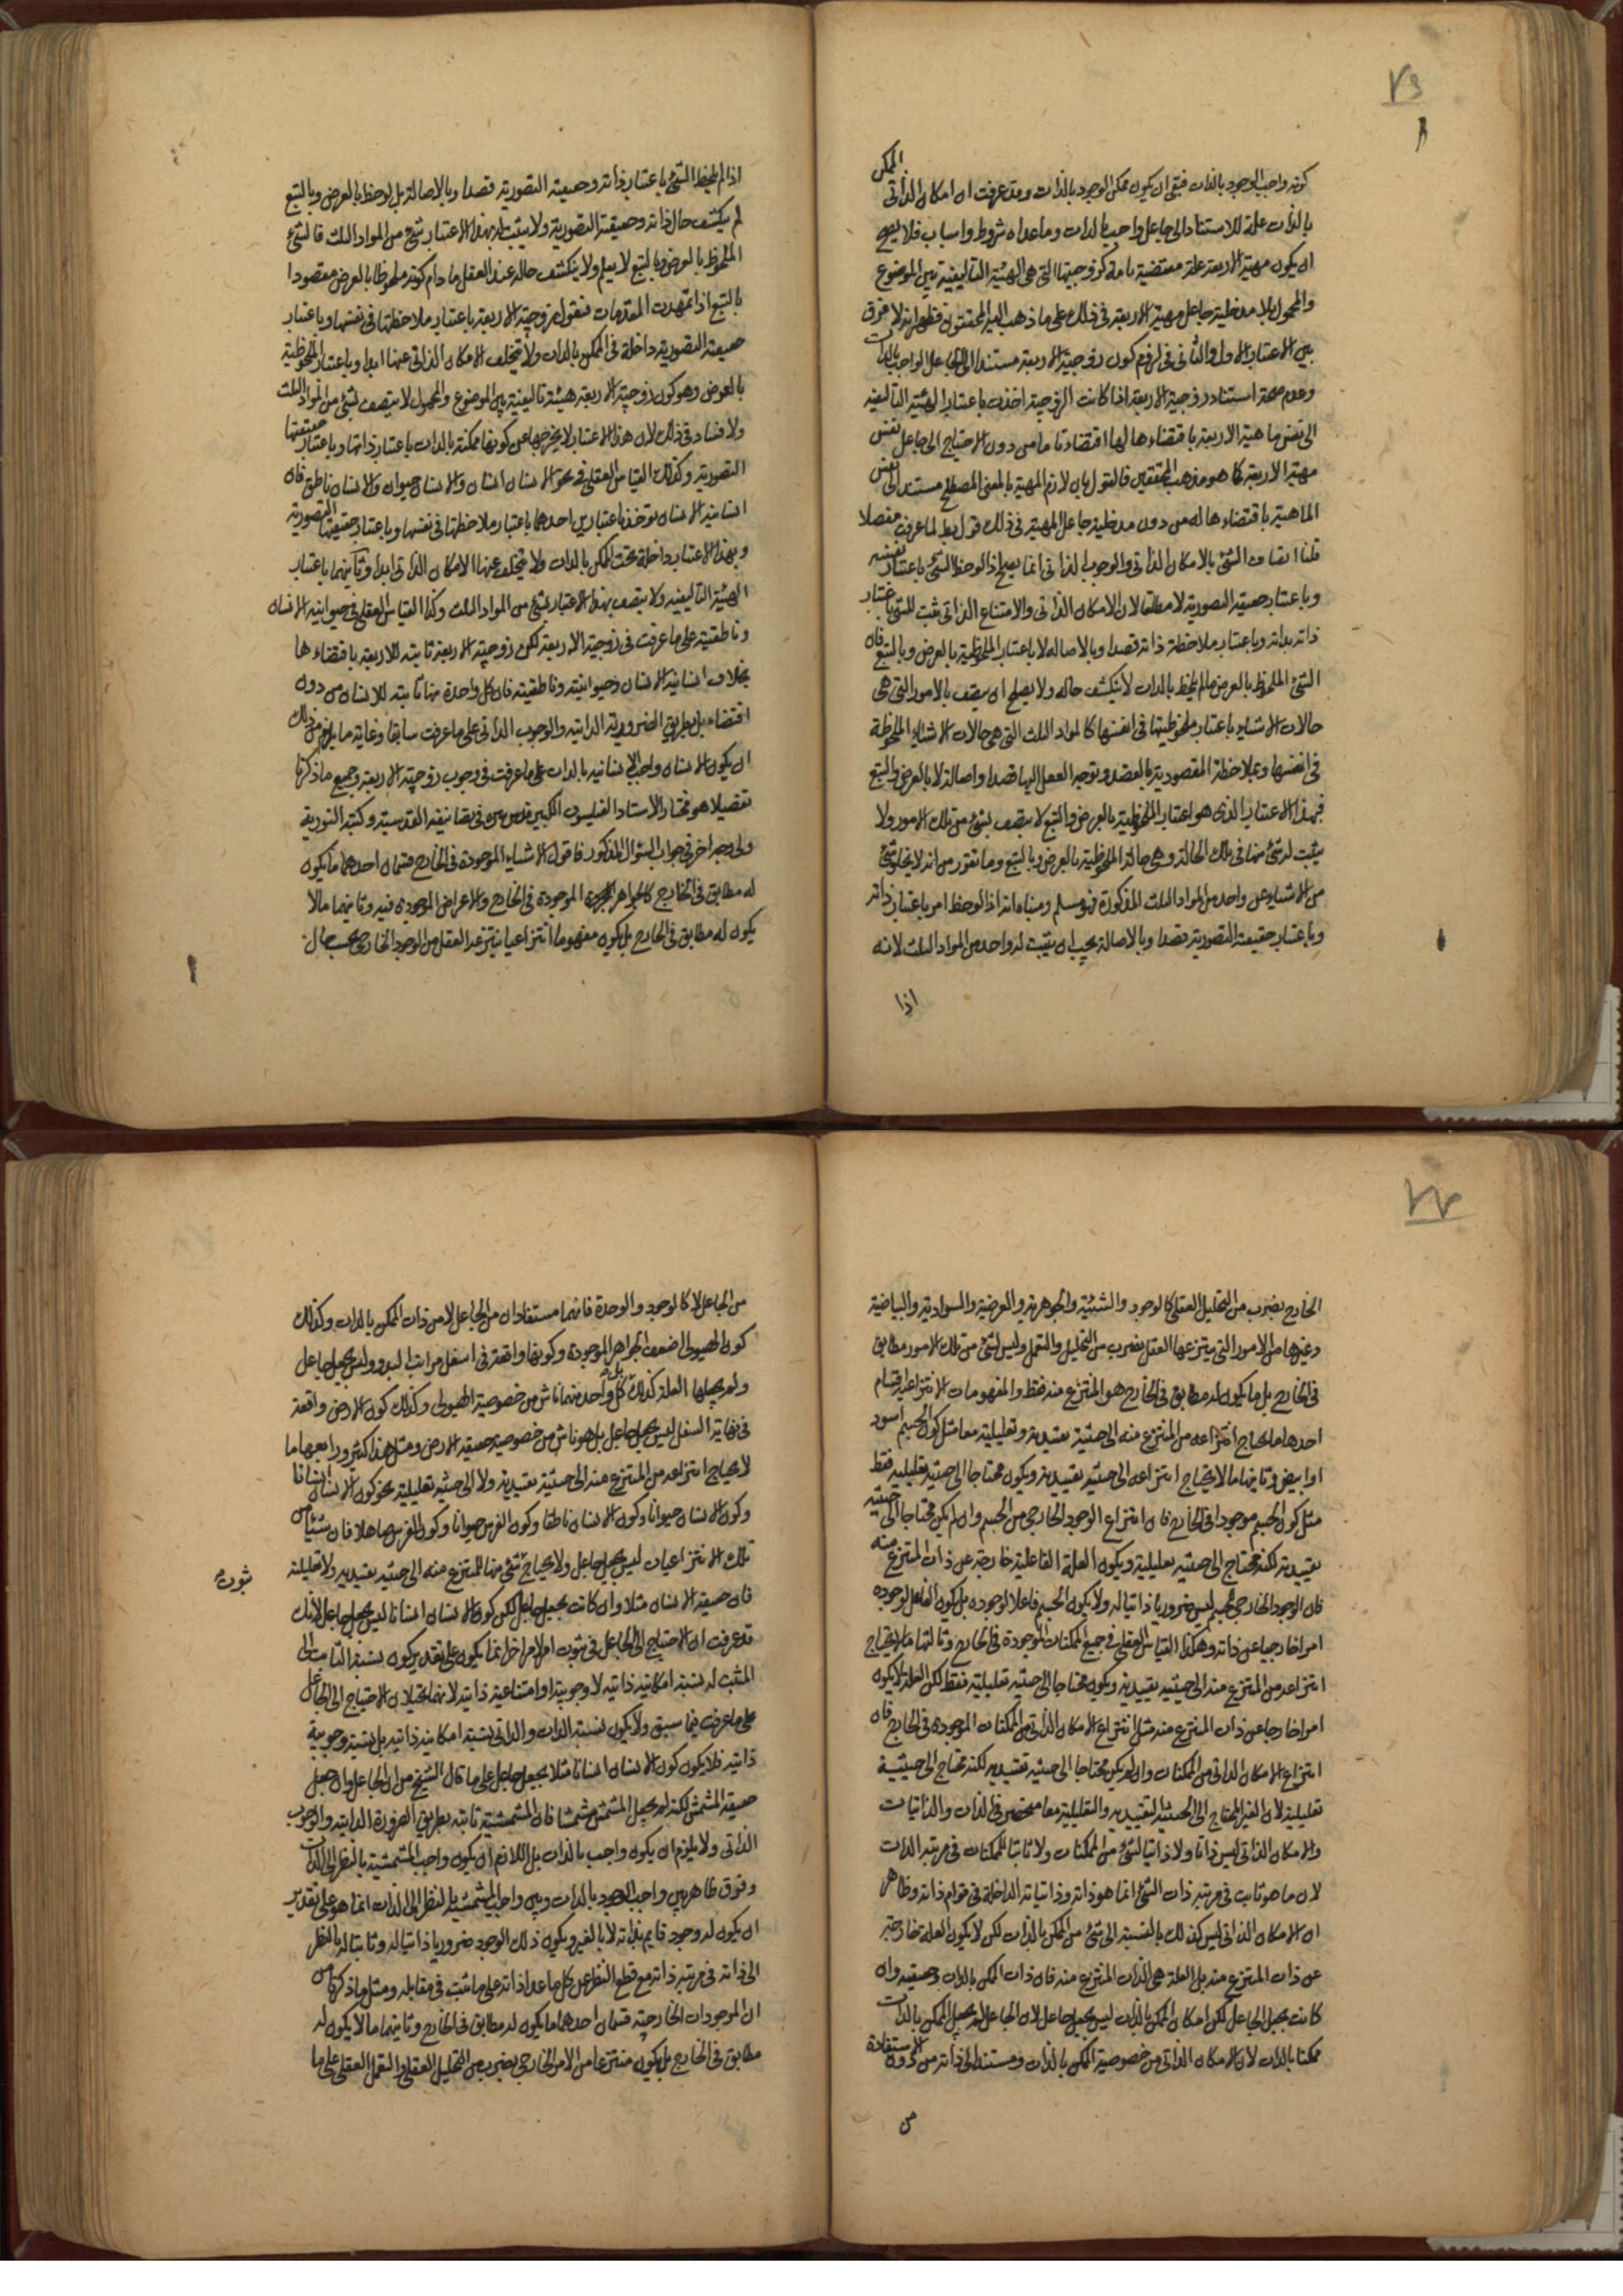 ٧٦
كونه واجب الوجود بالذات فبقى ان يكون ممكن الوجود بالذات وقد عرفت ان امكان الممكن الذاتى
بالذات علة للاستناد الى جاعل واجب بالذات وما عداه شروط واسباب فلا يصح
ان يكون مهية الاربعة علة مقتضية تامة لكون زوجيتها التى هى الهيئة التاليفية بين الموضوع
والمحمول بلا مدخلية جاعل مهية الاربعة فى ذلك على ما ذهب اليه المحققون فظهر انه لا فرق
بين الاعتبار الاول والثانى فى لزوم كون زوجية الاربعة مستندا الى الجاعل الواجب بالذات
وعدم صحة استناد زوجية الاربعة اذا كانت الزوجية اخذت باعتبار الهيئة التاليفية
الى نفس ماهية الاربعة باقتضاءها لها اقتضاء تاما من دون الاحتياج الى جاعل نفس
مهية الاربعة كما هو مذهب المحققين فالقول بان لازم المهية بالمعنى المصطلح مستند الى نفس
الماهية باقتضاءها له من دون مدخلية جاعل المهية فى ذلك قول بط لما عرفت مفصلا
قلنا اتصاف الشئ بالامكان الذاتى والوجوب الذاتى انما يصح اذا لوحظ الشئ باعتبار نفسه
وباعتبار حقيقته التصورية لا مطلقا لان الامكان الذاتى والامتناع الذاتى ثبت للشئ باعتبار
ذاته بذاته وباعتبار ملاحظة ذاته قصدا وبالاصالة لا باعتبار الملحوظية بالعرض وبالتبع فان
الشئ الملحوظ بالعرض ما لم يلحظ بالذات لا ينكشف حاله ولا يصلح ان يتصف بالامور التى هى
حالات الاشياء باعتبار ملحوظيتها فى انفسها كالمواد الثلث التى هى حالات الاشياء الملحوظة
فى انفسها وبملاحظة المقصودية بالقصد وتوجه العقل اليها قصدا واصالة لا بالعرض والتبع
فبهذا الاعتبار الذى هو اعتبار الملحوظية بالعرض والتبع لا يتصف بشئ من تلك الامور ولا
يثبت له شئ منها فى تلك الحالة وهى حالة الملحوظية بالعرض وبالتبع وما تقرر من انه لا يخلو شئ
من الاشياء عن واحد من المواد الثلث المذكورة فهو مسلم ومعناه انه اذا لوحظ امر باعتبار ذاته
وباعتبار حقيقته التصورية قصدا وبالاصالة يجب ان يثبت له واحد من المواد الثلث لانه
اذا
اذا لم يلحظ الشئ باعتبار ذاته وحقيقته التصورية قصدا وبالاصالة بل لوحظ بالعرض وبالتبع
لم ينكشف حال ذاته وحقيقته التصورية ولا يثبت له بهذا الاعتبار شئ من المواد الثلث فالشئ
الملحوظ بالعرض وبالتبع لا يعلم ولا ينكشف حاله عند العقل ما دام كونه ملحوظا بالعرض مقصودا
بالتبع اذا تمهدت المقدمات فنقول ان زوجية الاربعة باعتبار ملاحظتها فى نفسها وباعتبار
حقيقته التصورية داخلة فى الممكن بالذات ولا يتخلف الامكان الذاتى عنها ابدا وباعتبار الملحوظية
بالعرض وهو كون زوجية الاربعة هيئة تاليفية بين الموضوع والمحمول لا يتصف بشئ من المواد الثلث
ولا فساد فى ذلك لان هذا الاعتبار لا يخرجها عن كونها ممكنة بالذات باعتبار ذاتها وباعتبار حقيقتها
التصورية وكذلك القياس العقلى فى نحو الانسان انسان والانسان حيوان والانسان ناطق فان
انسانية الانسان يؤخذ باعتبارين احدهما باعتبار ملاحظتها فى نفسها وباعتبار حقيقتها التصورية
وبهذا الاعتبار داخلة تحت الممكن بالذات ولا يتخلف عنها الامكان الذاتى ابدا وثانيهما باعتبار
الهيئة التاليفية ولا يتصف بهذا الاعتبار بشئ من المواد الثلث وكذا القياس العقلى فى حيوانية الانسان
وناطقيته على ما عرفت فى زوجية الاربعة لكن زوجية الاربعة ثابتة للاربعة باقتضاءها
بخلاف انسانية الانسان وحيوانيته وناطقيته فان كل واحدة منها ثابتة للانسان من دون
اقتضاء بل بطريق الضرورية الذاتية والوجوب الذاتى على ما عرفت سابقا وغاية ما يلزم من ذلك
ان يكون الانسان واجب الانسانية بالذات على ما عرفت فى وجوب زوجية الاربعة وجميع ما ذكرنا
تفصيلا هو مختار الاستاد الفيلسوف الكبير قدس سره فى تصانيفه القدسية وكتبه النورية
ولى وجه اخر فى جواب السؤال المذكور فاقول الاشياء الموجودة فى الخارج قسمان احدهما ما يكون
له مطابق فى الخارج كالجواهر الموجودة فى الخارج والاعراض الموجودة فيه وثانيهما ما لا
يكون له مطابق فى الخارج بل يكون مفهوما انتزاعيا ينتزعه العقل من الموجود الخارجى بحسب حال
٧٧
الخارج بضرب من التحليل العقلى كالوجود والشيئية والجوهرية والعرضية والسوادية والبياضية
وغيرها من الامور التى ينتزعها العقل بضرب من التحليل والتعمل وليس لشئ من تلك الامور مطابق
فى الخارج بل ما يكون له مطابق فى الخارج هو المنتزع منه فقط والمفهومات الانتزاعية اقسام
احدها ما يحتاج انتزاعه من المنتزع منه الى حيثية تقييدية وتعليلية معا مثل كون الجسم اسود
او ابيض وثانيها ما لا يحتاج انتزاعه الى حيثية تقييدية ويكون محتاجا الى حيثية تعليلية فقط
مثل كون الجسم موجودا فى الخارج فان انتزاع الوجود الخارجى من الجسم وان لم يكن محتاجا الى حيثية
تقييدية لكنه محتاج الى حيثية تعليلية ويكون العلة الفاعلية خارجة عن ذات المنتزع منه
فان الوجود الخارجى للجسم ليس ضروريا ذاتيا له ولا يكون الجسم فاعلا لوجوده بل يكون الفاعل لوجوده
امرا خارجيا عن ذاته وهكذا القياس العقلى فى جميع الممكنات الموجودة فى الخارج وثالثها ما لا يحتاج
انتزاعه من المنتزع منه الى حيثية تقييدية ويكون محتاجا الى حيثية تعليلية فقط لكن العلة لا يكون
امرا خارجا عن ذات المنتزع منه مثل انتزاع الامكان الذاتى من الممكنات الموجودة فى الخارج فان
انتزاع الامكان الذاتى من الممكنات وان لم يكن محتاجا الى حيثية تقييدية لكنه محتاج الى حيثية
تعليلية لان الغير المحتاج الى الحيثية التقييدية والتعليلية معا منحصر فى الذات والذاتيات
والامكان الذاتى ليس ذاتا ولا ذاتيا لشئ من الممكنات ولا ثابتا للممكنات فى مرتبة الذات
لان ما هو ثابت فى مرتبة ذات الشئ انما هو ذاته وذاتياته الداخلة فى قوام ذاته وظاهر
ان الامكان الذاتى ليس كذلك بالنسبة الى شئ من الممكن بالذات لكن لا يكون العلة خارجة
عن ذات المنتزع منه بل العلة هى الذات المنتزع منه فان ذات الممكن بالذات وحقيقته وان
كانت بجعل الجاعل لكن امكان الممكن بالذات ليس بجعل جاعل لان الجاعل لم يجعل الممكن بالذات
ممكنا بالذات لان الامكان الذاتى من خصوصية الممكن بالذات ومستند الى ذاته من دون الاستفادة
من
من الجاعل لا كالوجود والوحدة فانهما مستفادان من الجاعل لا من ذات الممكن بالذات وكذلك
كون الهيولى اضعف الجواهر الموجودة وكونها واقعة فى اسفل مراتب البدو وليس بجعل جاعل
ولم يجعلها العلة كذلك بل كل واحد منهما ناش من خصوصية الهيولى وكذلك كون الارض واقعة
فى نهاية السفل ليس بجعل جاعل بل هو ناش من خصوصية حقيقة الارض ومثل هذا كثير ورابعها ما
لا يحتاج انتزاعه من المنتزع منه الى حيثية تقييدية ولا الى حيثية تعليلية نحو كون الانسان انسانا
وكون الانسان حيوانا وكون الانسان ناطقا وكون الفرس حيوانا وكون الفرس صاهلا فان شيئا من
تلك الانتزاعيات ليس بجعل جاعل ولا يحتاج شئ منها للمنتزع منه الى حيثية تقييدية ولا تعليلية
ثبوت
فان حقيقة الانسان مثلا وان كانت بجعل جاعل لكن كون الانسان انسانا ليس بجعل جاعل لانك
قد عرفت ان الاحتياج الى الجاعل فى ثبوت امر لامر اخر انما يكون على تقدير كون نسبة الثابت الى
المثبت له نسبة امكانية ذاتية لا وجوبية او امتناعية ذاتية لانهما يحيلان الاحتياج الى الجاعل
على ما عرفت فيما سبق ولا يكون نسبة الذات والذاتى نسبة امكانية ذاتية بل نسبة وجوبية
ذاتية فلا يكون كون الانسان انسانا مثلا بجعل جاعل على ما قال الشيخ من ان الجاعل وان جعل
حقيقة المشمش لكنه لم يجعل المشمش مشمشا فان المشمشية ثابتة بطريق الضرورة الذاتية والوجوب
الذاتى ولا يلزم ان يكون واجب بالذات بل اللازم ان يكون واجب المشمشية بالنظر الى الذات
وفرق ظاهر بين واجب الوجود بالذات وبين واجب المشمشية بالنظر الى الذات انما هو على تقدير
ان يكون له وجود قايم بذاته لا بالغير ويكون ذلك الوجود ضروريا ذاتيا له وثابتا له بالنظر
الى ذاته فى مرتبة ذاته مع قطع النظر عن كل ما عدا ذاته على ما ثبت فى مقابله ومثل ما ذكرنا من
ان الموجودات الخارجية قسمان احدهما ما يكون له مطابق فى الخارج وثانيهما ما لا يكون له
مطابق فى الخارج بل يكون منتزعا من الامر الخارجى بضرب من التحليل العقلى والتعمل العقلى على ما